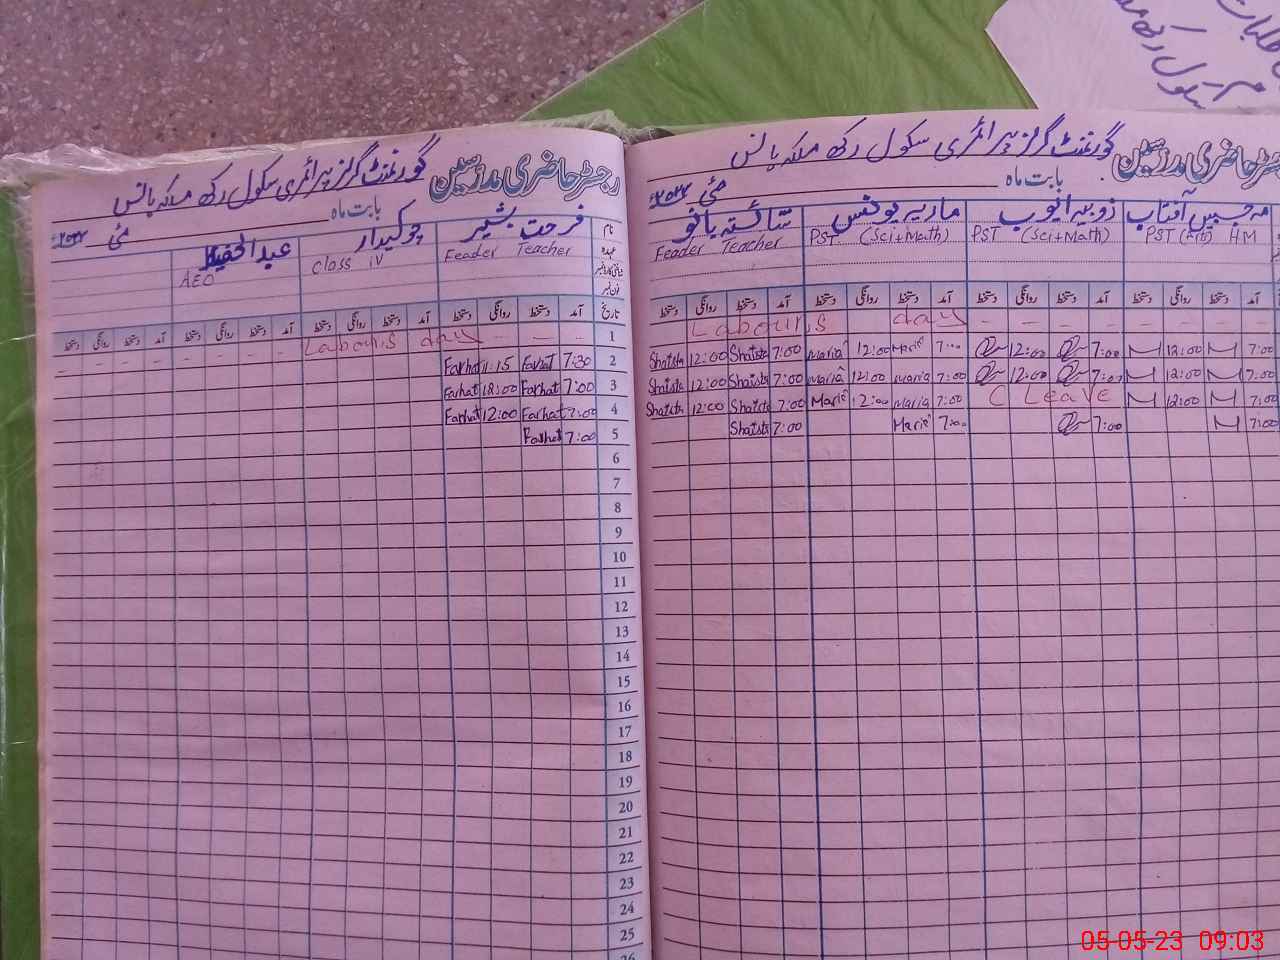 رجسٹر حاضری مدرسین گورنمنٹ گرلز پرائمری سکول رکھ
بابت ماہ مئی
نام فرحت بشیر چوکیدار
عہدہ Feader Teacher Class IV AEO
تاریخ آمد دستخط روانگی دستخط آمد دستخط روانگی دستخط آمد دستخط روانگی دستخط آمد دستخط روانگی دستخط
1 - - - Labour,s day
2 7:30 Farhat 11:15 Farhat
3 7:00 Farhat 12:00 Farhat
4 7:00 Farhat 12:00 Farhat
5 7:00 Farhat
6
7
8
9
10
11
12
13
14
15
16
17
18
19
20
21
22
23
24
25
26
رجسٹر حاضری مدرسین گورنمنٹ گرلز پرائمری سکول رکھ
بابت ماہ مئی
مہ جبیں آفتاب زوبیہ ایوب ماریہ یونس شائستہ بانو
PST (Arts) HM PST (Sci+Math) PST (Sci+Math) Feader Teacher
آمد دستخط روانگی دستخط آمد دستخط روانگی دستخط آمد دستخط روانگی دستخط آمد دستخط روانگی دستخط
Labour,s day
7:00 12:00 7:00 12:00 7:00 Maria 12:00 Maria 7:00 Shaista 12:00 Shaista
7:00 12:00 7:00 12:00 7:00 Maria 12:00 Maria 7:00 Shaista 12:00 Shaista
7:00 12:00 C Leave 7:00 Maria 12:00 Maria 7:00 Shaista 12:00 Shaista
7:00 7:00 7:00 Maria 7:00 Shaista
سکول رکھ
05-05-23 09:03